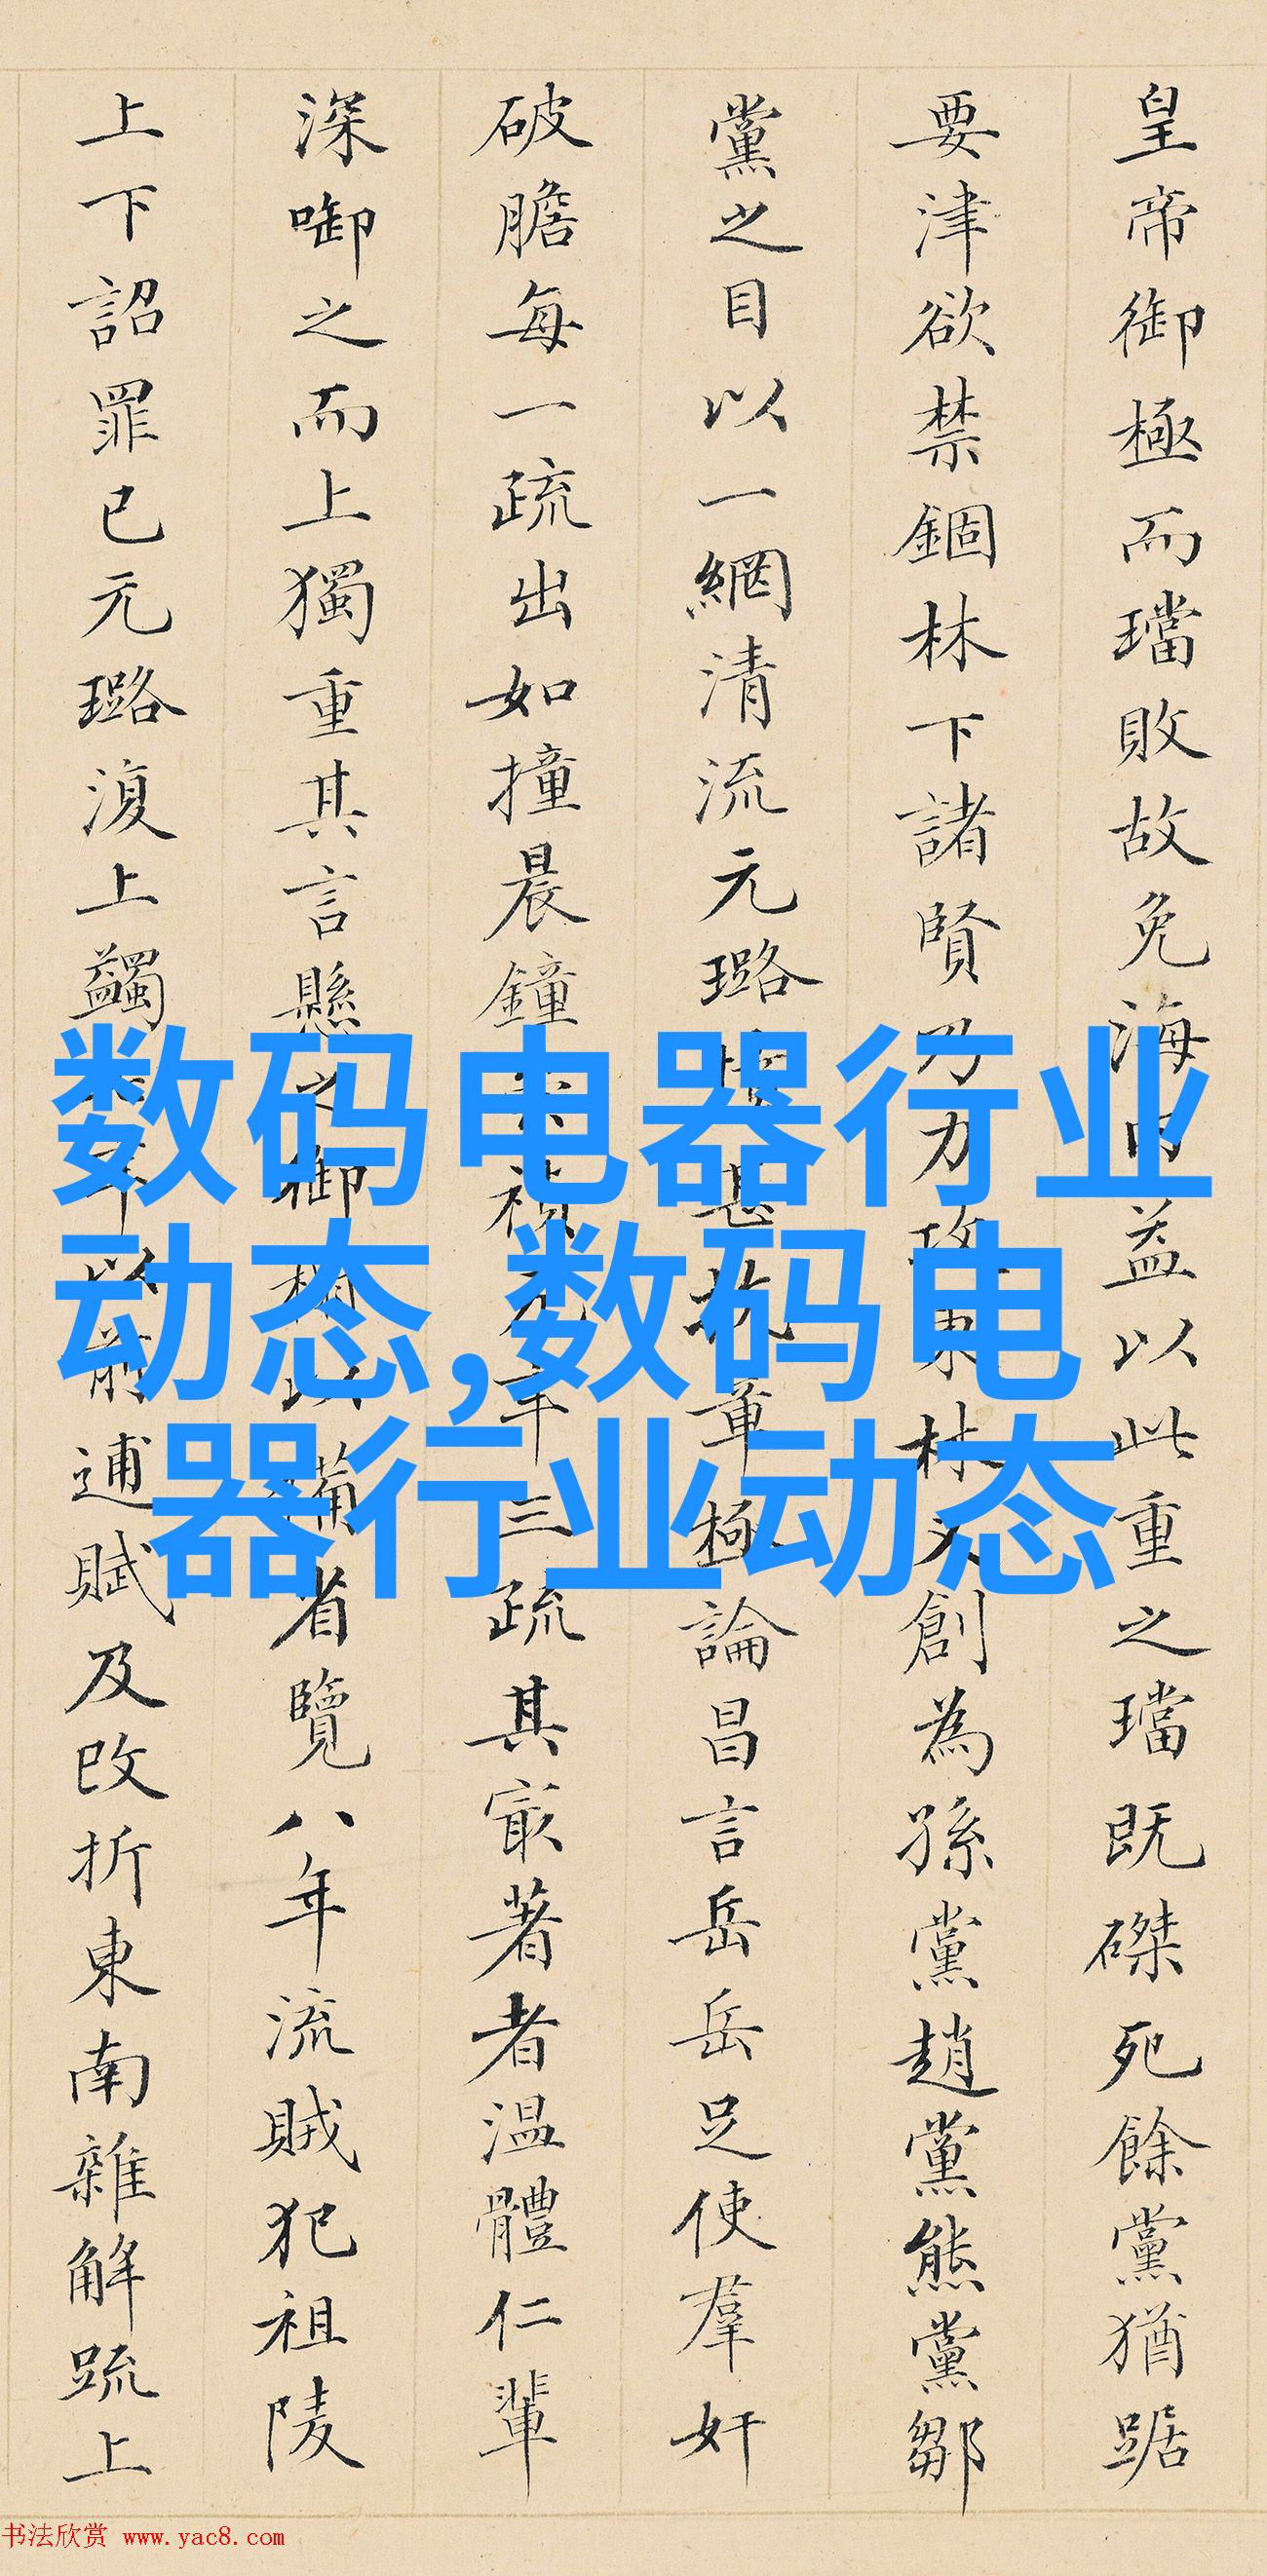 皇帝御極而璫敗故免海内益以此重之璫既磔死餘黨猶踞
要津欲禁錮林下諸賢乃力攻東林又創為孫黨趙黨熊黨鄒
黨之目以一網清流元璐抗章極論昌言岳岳足使羣奸
破膽每一疏出如撞晨鐘禎九年三疏其寂著者溫體仁輩
深啣之而上獨重其言懸之御以備省覽八年流賊犯祖陵
上下詔罪已元璐復上蠲年以前逋賦及改折東南雜解疏上
数码电器行业
动态,数码电
器行业动态
书法欣赏 www.yac8.com